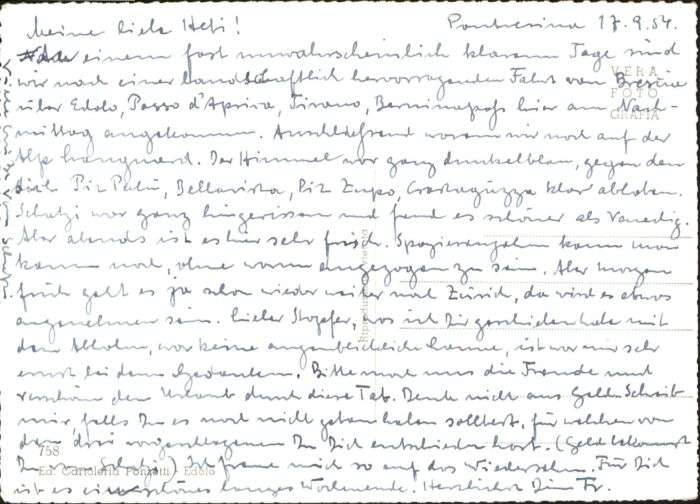 Meine liebe Hesi! Pontresina 17.9.54.
einem fast unwahrscheinlich klaren Tage sind
wir nach einer landschaftlich hervorragenden Fahrt von Brescia
über Edolo, Passo d'Aprica, Tirano, Berninapass hier am Nach-
mittag angekommen. Anschliessend waren wir noch auf der
Alp Languard. Der Himmel war ganz dunkelblau, gegen den
sich Piz Palü, Bellavista, Piz Zupo, Crastaguzza klar abhoben.
Schatzi war ganz hingerissen und fand es schöner als Venedig.
Aber abends ist es hier sehr frisch. Spazierengehen kann man
kaum noch, ohne warm angezogen zu sein. Aber morgen
früh geht es ja schon wieder weiter nach Zürich, da wird es etwas
angenehmer sein. Lieber Stopfer, was ich Dir geschrieben habe mit
dem Abholen, war keine augenblickliche Laune, ist war mir sehr
ernst bei dem Gedanken. Bitte mach uns die Freude und
verschöne den Urlaub durch diese Tat. Denk nicht ans Geld. Schreib
mir, falls Du es noch nicht getan haben solltest, für welchen von
den drei vorgeschlagenen Du Dich entschieden hast. (Geld bekommst
Du von Schatzi) Ich freue mich so auf das Wiedersehen. Für Dich
ist es ein schönes langes Wochenende. Herzlichst Dein Fr.
VERA
FOTO
GRAFIA
758
Ed. Cartoleria Edolo